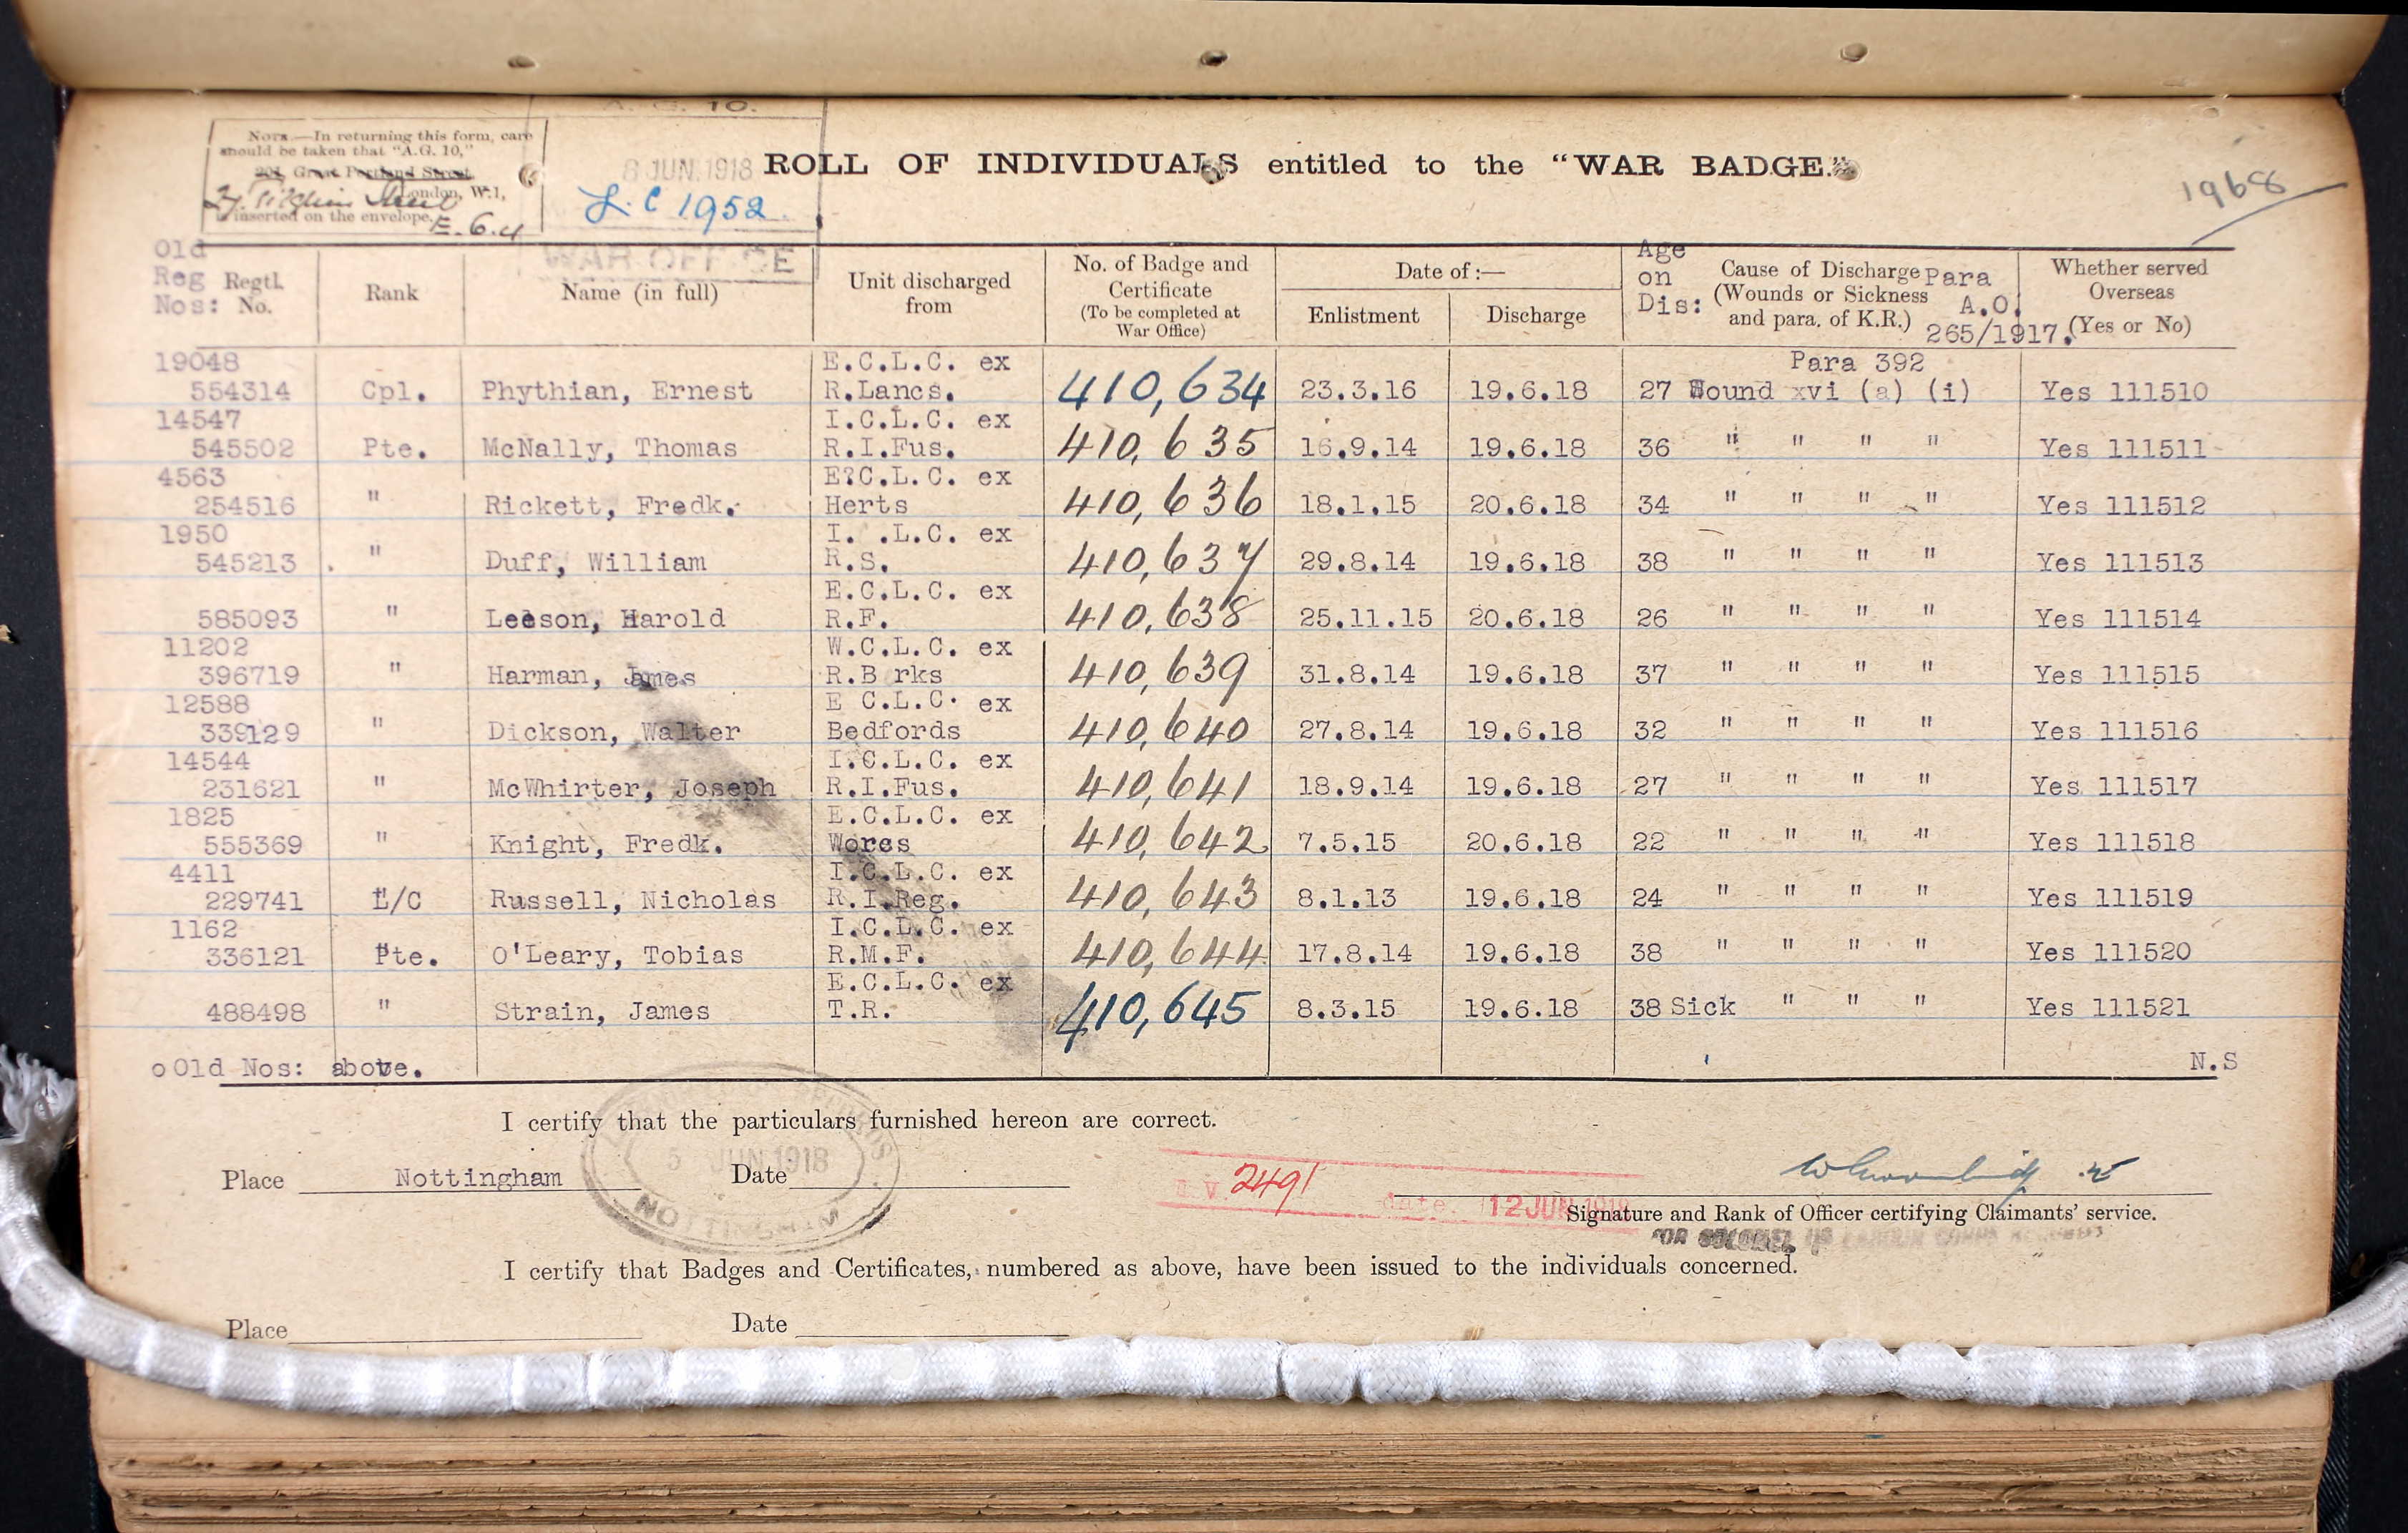 A. G. 10.
NOTE.—In returning this form, care
should be taken that "A.G. 10,"
Great Portland Street,
London, W.1,
inserted on the envelope.
E. 6. 4
8 JUN. 1918
L.C 1952
WAR OFFICE
ROLL OF INDIVIDUALS entitled to the "WAR BADGE."
1968
Old Reg Nos: Regtl. No. Rank Name (in full) Unit discharged from No. of Badge and Certificate (To be completed at War Office) Date of :— Enlistment Discharge Age on Dis: Cause of Discharge (Wounds or Sickness and para. of K.R.) Para A.O. 265/1917. Whether served Overseas (Yes or No)
19048 E.C.L.C. ex Para 392
554314 Cpl. Phythian, Ernest R.Lancs. 410,634 23.3.16 19.6.18 27 Wound xvi (a) (i) Yes 111510
14547 I.C.L.C. ex
545502 Pte. McNally, Thomas R.I.Fus. 410,635 16.9.14 19.6.18 36 " " " " Yes 111511
4563 E?C.L.C. ex
254516 " Rickett, Fredk. Herts 410,636 18.1.15 20.6.18 34 " " " " Yes 111512
1950 I. .L.C. ex
545213 . " Duff, William R.S. 410,637 29.8.14 19.6.18 38 " " " " Yes 111513
E.C.L.C. ex
585093 " Leeson, Harold R.F. 410,638 25.11.15 20.6.18 26 " " " " Yes 111514
11202 W.C.L.C. ex
396719 " Harman, James R.B rks 410,639 31.8.14 19.6.18 37 " " " " Yes 111515
12588 E C.L.C. ex
339129 " Dickson, Walter Bedfords 410,640 27.8.14 19.6.18 32 " " " " Yes 111516
14544 I.C.L.C. ex
231621 " McWhirter, Joseph R.I.Fus. 410,641 18.9.14 19.6.18 27 " " " " Yes 111517
1825 E.C.L.C. ex
555369 " Knight, Fredk. Worcs 410,642 7.5.15 20.6.18 22 " " " " Yes 111518
4411 I.C.L.C. ex
229741 L/C Russell, Nicholas R.I.Reg. 410,643 8.1.13 19.6.18 24 " " " " Yes 111519
1162 I.C.L.C. ex
336121 Pte. O'Leary, Tobias R.M.F. 410,644 17.8.14 19.6.18 38 " " " " Yes 111520
E.C.L.C. ex
488498 " Strain, James T.R. 410,645 8.3.15 19.6.18 38 Sick " " " Yes 111521
o Old Nos: above. N.S
I certify that the particulars furnished hereon are correct.
Place Nottingham Date
5 JUN 1918
NOTTINGHAM
2491 date. 12 JUN 1918
Signature and Rank of Officer certifying Claimants' service.
FOR COLONEL I/C LABOUR CORPS RECORDS
I certify that Badges and Certificates, numbered as above, have been issued to the individuals concerned.
Place Date